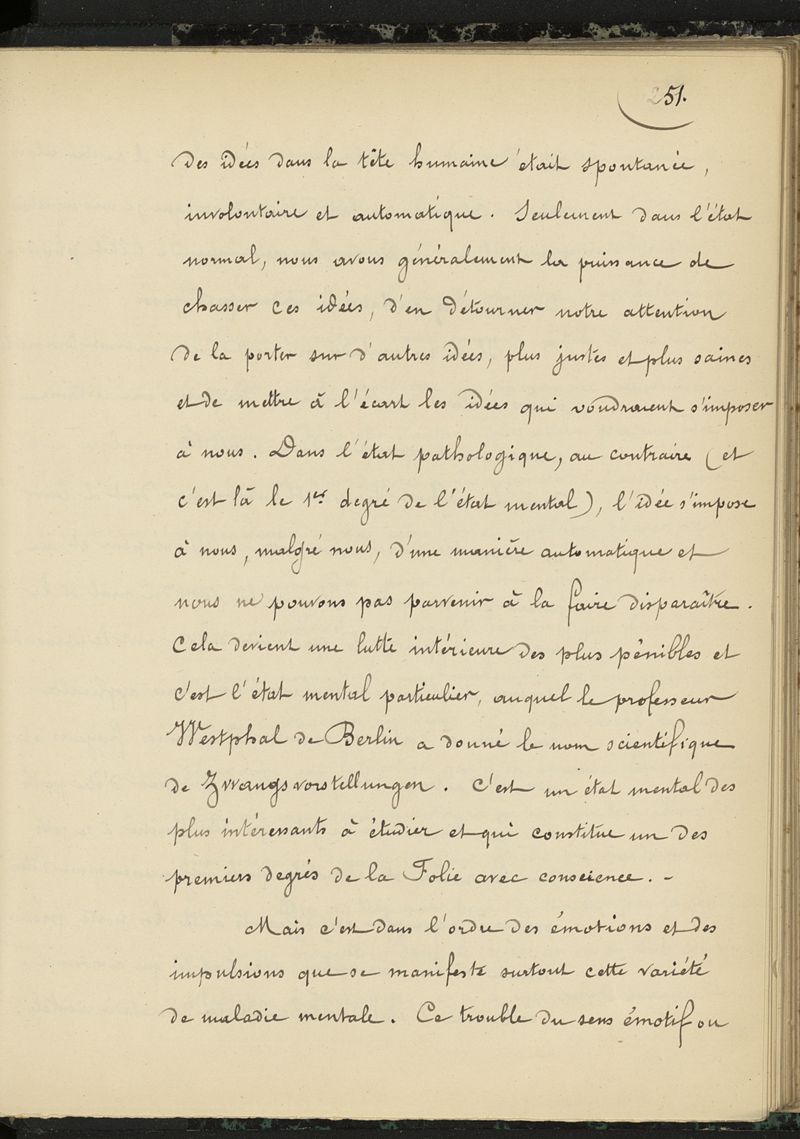 251.
des idées dans la tête humaine était spontanée,
involontaire et automatique. Seulement dans l'état
normal, nous avons généralement la puissance de
chasser ces idées, d'en détourner notre attention
de la porter sur d'autres idées, plus justes et plus saines
et de mettre à l'écart les idées qui voudraient s'imposer
à nous. Dans l'état pathologique, au contraire (et
c'est là le 1er degré de l'état mental), l'idée s'impose
à nous, malgré nous, d'une manière automatique et
nous ne pouvons pas parvenir à la faire disparaître.
Cela devient une lutte intérieure des plus pénibles et
c'est l'état mental particulier, auquel le professeur
Westphal de Berlin a donné le nom scientifique
de Zwangsvorstellungen. C'est un état mental des
plus intéressants à étudier et qui constitue un des
premiers degrés de la Folie avec conscience. -
Mais c'est dans l'ordre des émotions et des
impulsions que se manifeste surtout cette variété
de maladie mentale. Ce trouble du sens émotif ou